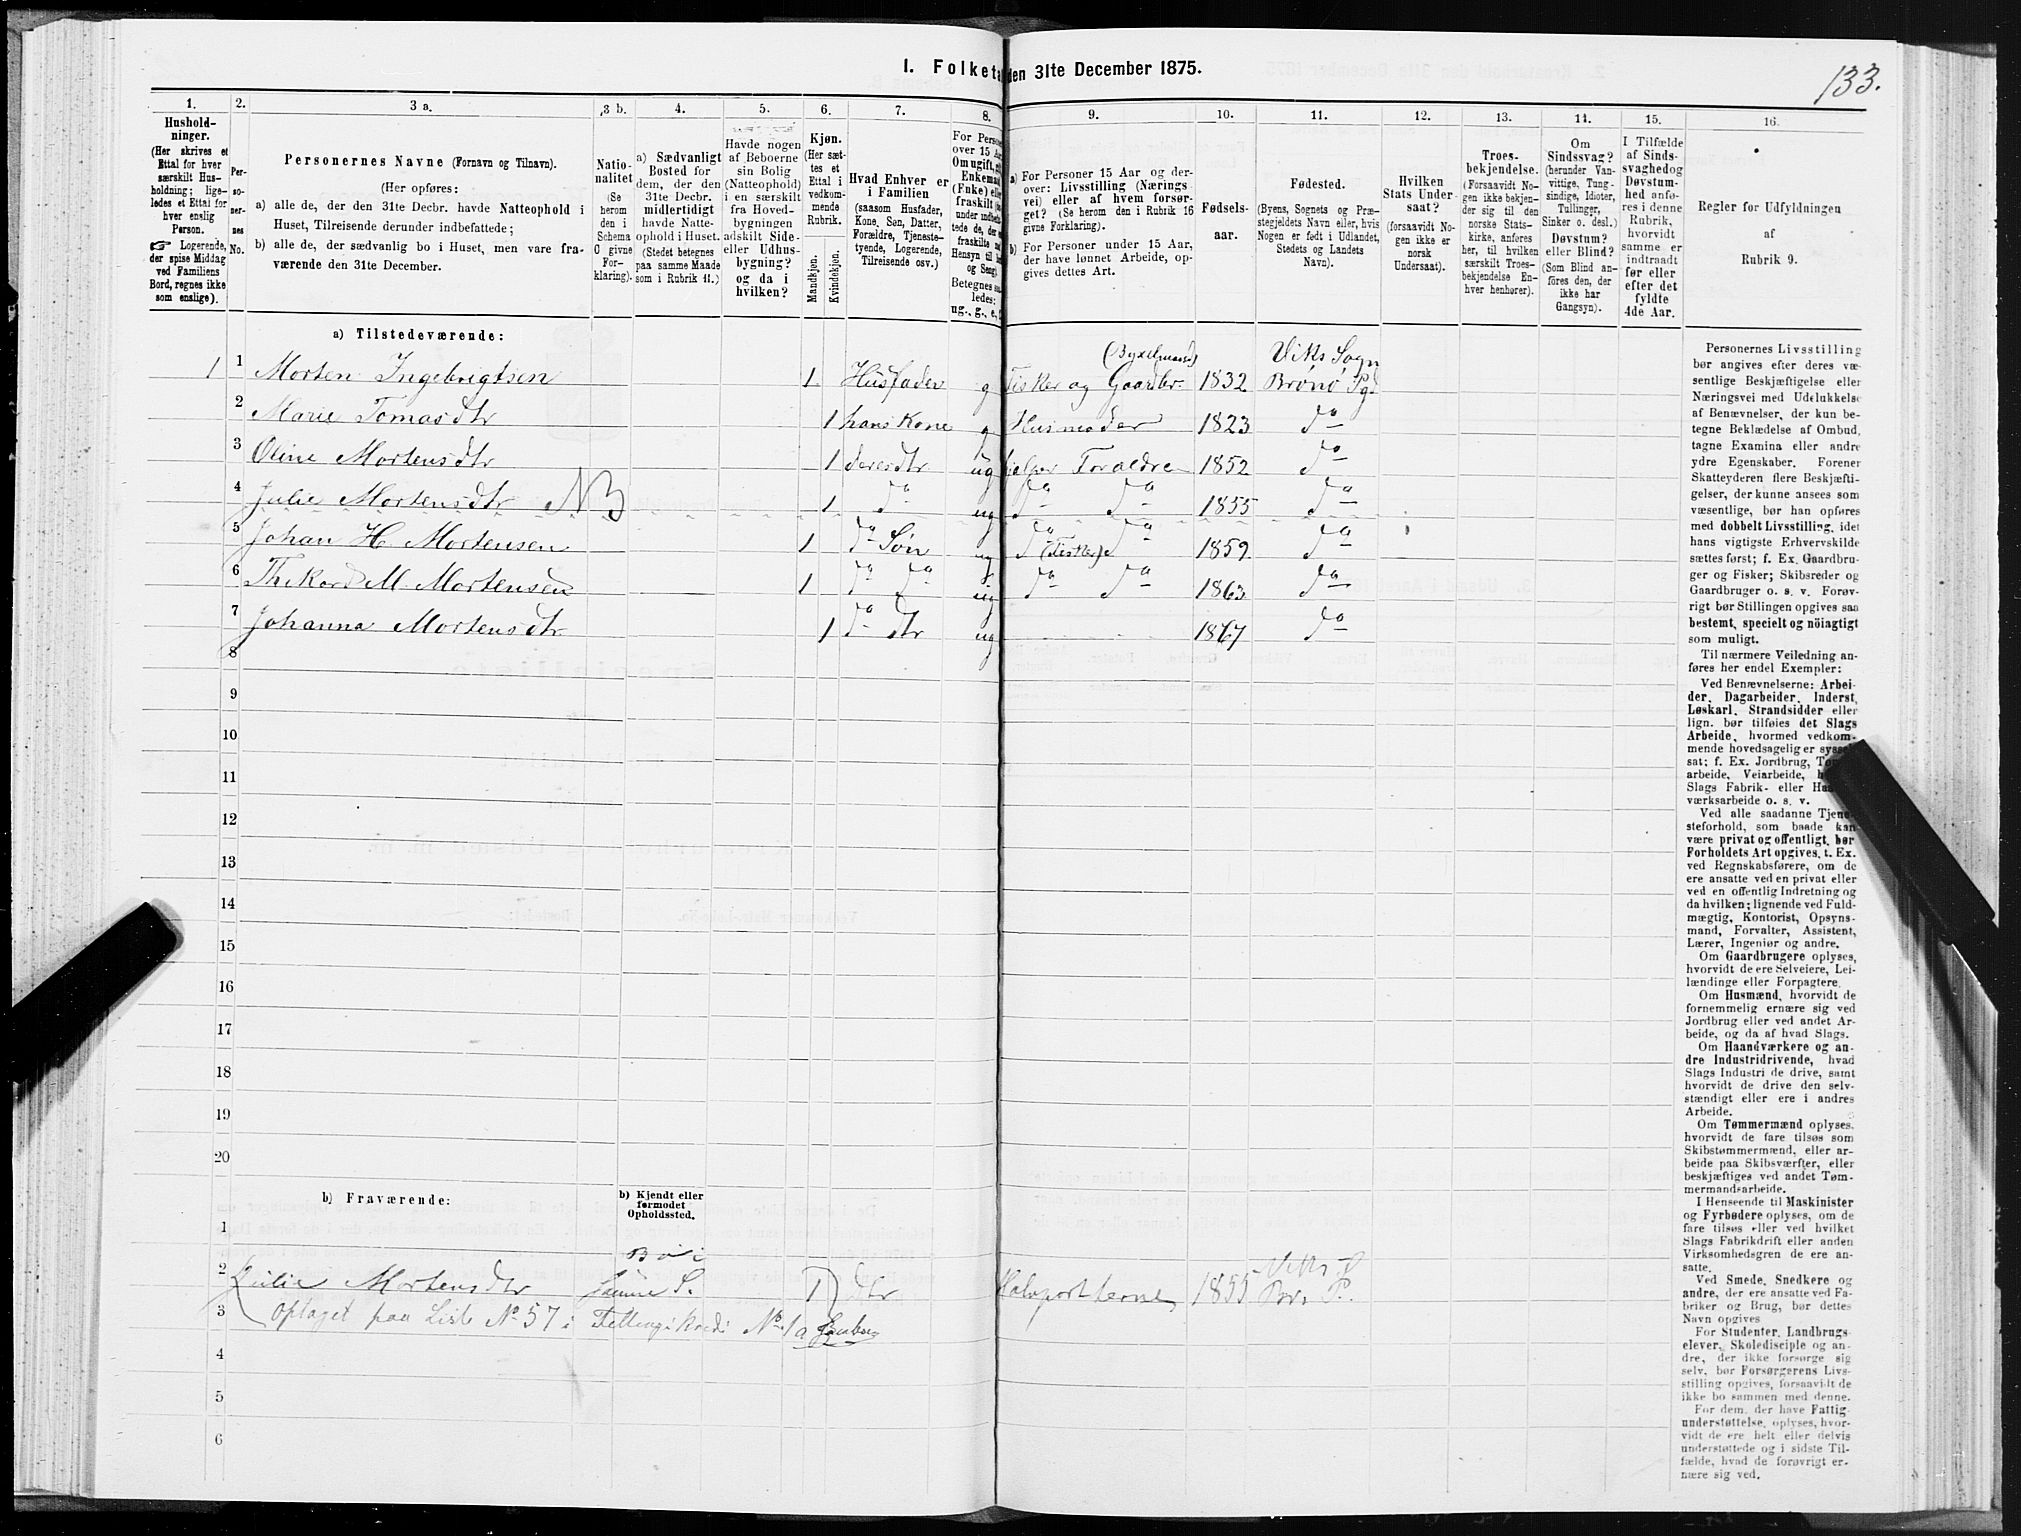 1. Folketa den 31te December 1875.
133.
1.
2.
3 a.
3 b.
4.
5.
6.
7.
8.
9.
10.
11.
12.
13.
14.
15.
16.
Hushold-
ninger.
(Her skrives et
Ettal for hver
særskilt Hus-
holdning; lige-
ledes et Ettal for
hver enslig
Person.
☞ Logerende,
der spise Middag
ved Familiens
Bord, regnes ikke
som enslige).
Per-
so-
ner-
nes
No.
Personernes Navne (Fornavn og Tilnavn).
(Her opføres:
a) alle de, der den 31te Decbr. havde Natteophold i
Huset, Tilreisende derunder indbefattede;
b) alle de, der sædvanlig bo i Huset, men vare fra-
værende den 31te December.
Natio-
nalitet
(Se
herom
den i
Schema
O givne
For-
klaring).
a) Sædvanligt
Bosted for
dem, der den
31te Decbr.
midlertidigt
havde Natte-
ophold i Huset.
(Stedet betegnes
paa samme Maade
som i Rubrik 11.)
Havde nogen
af Beboerne
sin Bolig
(Natteophold)
i en særskilt
fra Hoved-
bygningen
adskilt Side-
eller Udhus-
bygning?
og da i
hvilken?
Kjøn.
(Her sæt-
tes et
Ettal i
vedkom-
mende
Rubrik.
Mandkjøn.
Kvindekjøn.
Hvad Enhver er
i Familien
(saasom Husfader,
Kone, Søn, Datter,
Forældre, Tjeneste-
tyende, Logerende,
Tilreisende osv.)
For Person
over 15 Aar
Om ugift, gi
Enkemand
(Enke) eller
fraskilt
Betegnes saa
ledes:
ug., g., e,
a) For Personer 15 Aar og der-
over: Livsstilling (Nærings
vei) eller af hvem forsør-
get? (Se herom den i Rubrik 16
givne Forklaring).
b) For Personer under 15 Aar,
der have lønnet Arbeide, op-
gives dettes Art.
Fødsels-
aar.
Fødested.
(Byens, Sognets og Præ-
stegjeldets Navn eller, hvis
Nogen er født i Udlandet,
Stedets og Landets
Navn).
Hvilken
Stats Under-
saat?
(forsaavidt No-
gen ikke er
norsk
Undersaat).
Troes-
bekjendelse.
(Forsaavidt No-
gen ikke bekjen-
der sig til den
norske Stats-
kirke, anføres
her, til hvilken
særskilt Troes-
bekjendelse En-
hver henhører).
Om
Sindssvag?
(herunder Van-
vittige, Tung-
sindige, Idioter,
Tullinger,
Sinker o. desl.)
Døvstum?
eller Blind?
(Som Blind an-
føres den, der
ikke har
Gangsyn).
I Tilfælde
af Sinds-
svaghed og
Døvstum-
hed anfø-
res i denne
Rubrik,
hvorvidt
samme er
indtraadt
før eller
efter det
fyldte
4de Aar.
Regler for Udfyldningen
af
Rubrik 9.
a) Tilstedeværende:
1 1 Morten Ingebrigtsen 1 Husfader g Fisker og Gaardbr. (Byxelmand) 1832 Viks Sogn Brønø Pgd
2 Marie Tomasdtr 1 hans Kone g Husmoder 1823 do
3 Oline Mortensdtr 1 deres dtr ug hjelper Foraldre 1852 do
4 Julie Mortensdtr NB 1 do ug do do 1855 do
5 Johan H Mortensen 1 do Søn ug do (Fisker) do 1859 do
6 M. Mortensen 1 do do ug do do 1863 do
7 Johanna Mortensdtr 1 do dtr ug 1867 do
8
9
10
11
12
13
14
15
16
17
18
19
20
b) Fraværende:
b) Kjendt eller
formodet
Opholdssted.
1
2 Julie Mortensdtr 1 dtr 1855 Viks S
3 Optaget paa Liste No 57 i No 1a
4
5
6
Personernes Livsstilling
bør angives efter deres væ-
sentlige Beskjæftigelse eller
Næringsvei med Udelukkelse
af Benævnelser, der kun be-
tegne Beklædelse af Ombud,
tagne Examina eller andre
ydre Egenskaber. Forener
Skatteyderen flere Beskjæfti-
gelser, der kunne ansees som
væsentlige, bør han opføres
med dobbelt Livsstilling, idet
hans vigtigste Erhvervskilde
sættes først; f. Ex. Gaardbru-
ger og Fisker; Skibsreder og
Gaardbruger o. s. v. Forøv-
rigt bør Stillingen opgives saa
bestemt, specielt og nöiagtigt
som muligt.
Til nærmere Veiledning an-
føres her endel Exempler:
Ved Benævnelserne: Arbei-
der, Dagarbeider, Inderst,
Løskarl, Strandsidder eller
lign. bør tilføies det Slags
Arbeide, hvormed vedkom-
mende hovedsagelig er syssel
sat; f. Ex. Jordbrug,
arbeide, Veiarbeide,
Slags Fabrik- eller
værksarbeide o. s. v.
Ved alle saadanne Tjene-
steforhold, som baade kan
være privat og offentligt, bør
Forholdets Art opgives, t. Ex.
ved Regnskabsførere, om de
ere ansatte ved en privat eller
ved en offentlig Indretning og
da hvilken; lignende ved Fuld-
mægtig, Kontorist, Opsyns-
mand, Forvalter, Assistent,
Lærer, Ingeniør og andre.
Om Gaardbrugere oplyses,
hvorvidt de ere Selveiere, Lei-
lændinge eller Forpagtere.
Om Husmænd, hvorvidt de
fornemmelig ernære sig ved
Jordbrug eller ved andet Ar-
beide, og da af hvad Slags.
Om Haandværkere og an-
dre Industridrivende, hvad
Slags Industri de drive, samt
hvorvidt de drive den selv-
stændigt eller ere i andres
Arbeide.
Om Tømmermænd oplyses,
hvorvidt de fare tilsøs som
Skibstømmermænd, eller ar-
beide paa Skibsværfter, eller
beskjæftiges ved andet Tøm-
mermandsarbeide.
I Henseende til Maskinister
og Fyrbødere oplyses, om de
fare tilsøs eller ved hvilket
Slags Fabrikdrift eller anden
Virksomhedsgren de ere an-
satte.
Ved Smede, Snedkere og
andre, der ere ansatte ved Fa-
briker og Brug, bør dettes
Navn opgives
For Studenter, Landbrugs-
elever, Skoledisciple og an-
dre, der ikke forsørge sig
selv, bør Forsørgerens Livs-
stilling opgives, forsaavidt de
ikke bo sammen med denne.
For dem, der have Fattig-
understøttelse, oplyses, hvor-
vidt de ere helt eller delvis
understøttede og i sidste Til-
fælde, hvad de forøvrigt er-
nære sig ved.